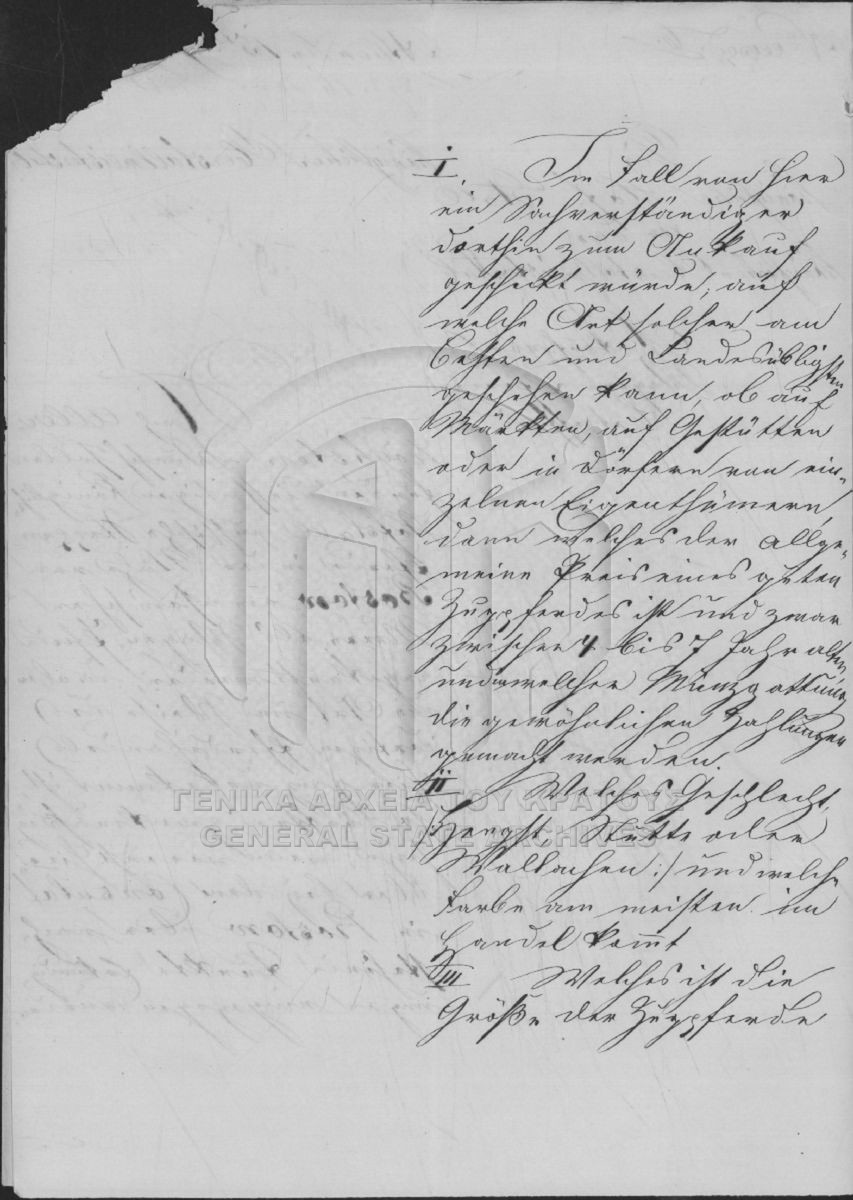 I. Im Fall von hier
ein Sachverständiger
dorthin zum Ankauf
geschickt würde, auf
welche Art solcher am
Besten und Landesübligsten
geschehen kann, ob auf
Märkten, auf Gestütten
oder in Dörfern von ein-
zelnen Eigenthümern,
dann welches der allge-
meine Preis eines guten
Zugpferdes ist und zwar
zwischen 4 bis 7 Jahr alten
und in welcher Münzgattung
die gewöhnlichen Zahlungen
gemacht werden.
II Welches Geschlecht,
/: Hengst, Stutte oder
Wallachen :/ und welche
Farbe am meisten im
Handel kom̄t
III Welches ist die
Größe der Zugpferde
ΓΕΝΙΚΑ ΑΡΧΕΙΑ ΤΟΥ ΚΡΑΤΟΥΣ
GENERAL STATE ARCHIVES